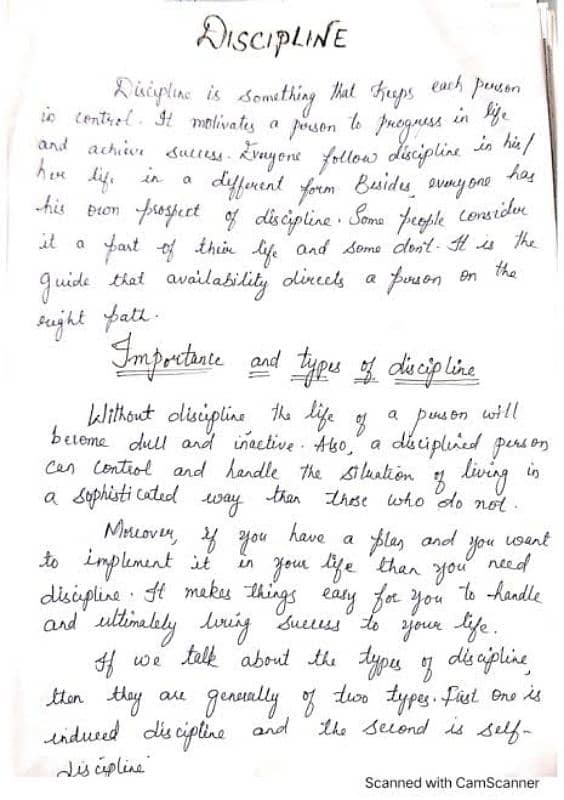 DISCIPLINE
Discipline is something that keeps each person
in control. It motivates a person to progress in life
and achieve success. Everyone follow discipline in his/
her life in a different form. Besides, everyone has
his own prospect of discipline. Some people consider
it a part of their life and some don't. It is the
guide that availability directs a person on the
right path.
Importance and types of discipline
Without discipline the life of a person will
become dull and inactive. Also, a disciplined person
can control and handle the situation of living in
a sophisticated way than those who do not.
Moreover, if you have a plan and you want
to implement it in your life than you need
discipline. It makes things easy for you to handle
and ultimately bring success to your life.
If we talk about the types of discipline,
then they are generally of two types. First one is
induced discipline and the second is self-
discipline
Scanned with CamScanner